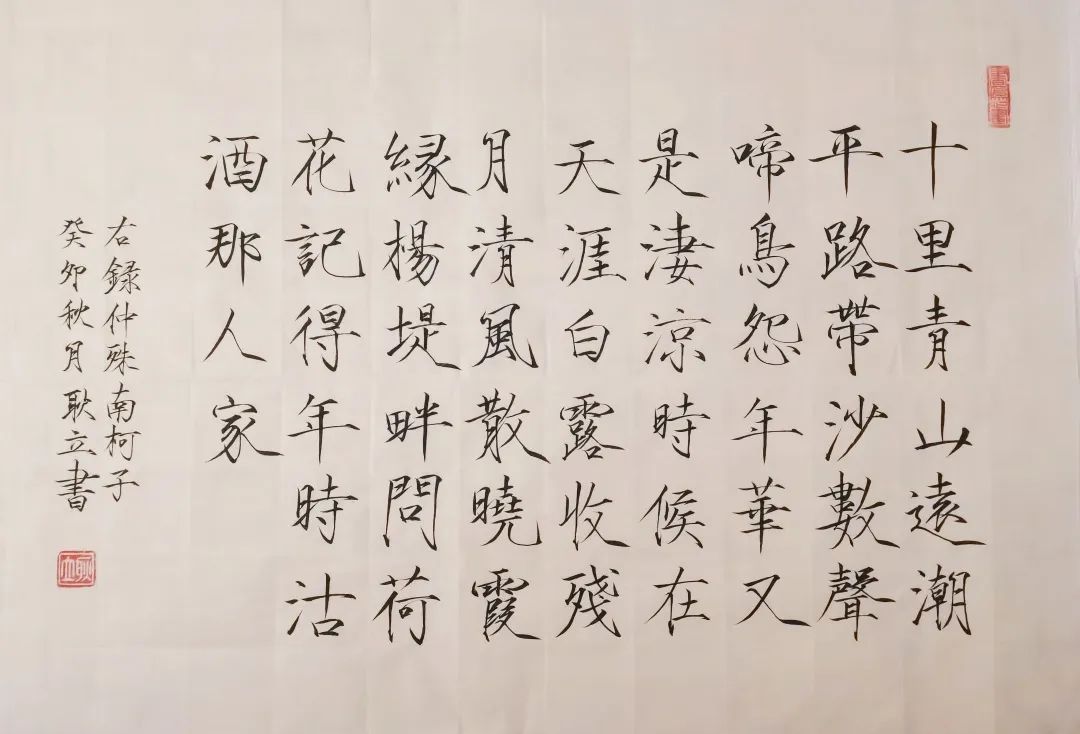 十里青山遠潮
平路帶沙數聲
啼鳥怨年華又
是淒涼時候在
天涯白露收殘
月清風散曉霞
縁楊堤畔問荷
花記得年時沽
酒那人家
右錄仲殊南柯子
癸卯秋月耿立書
耿立